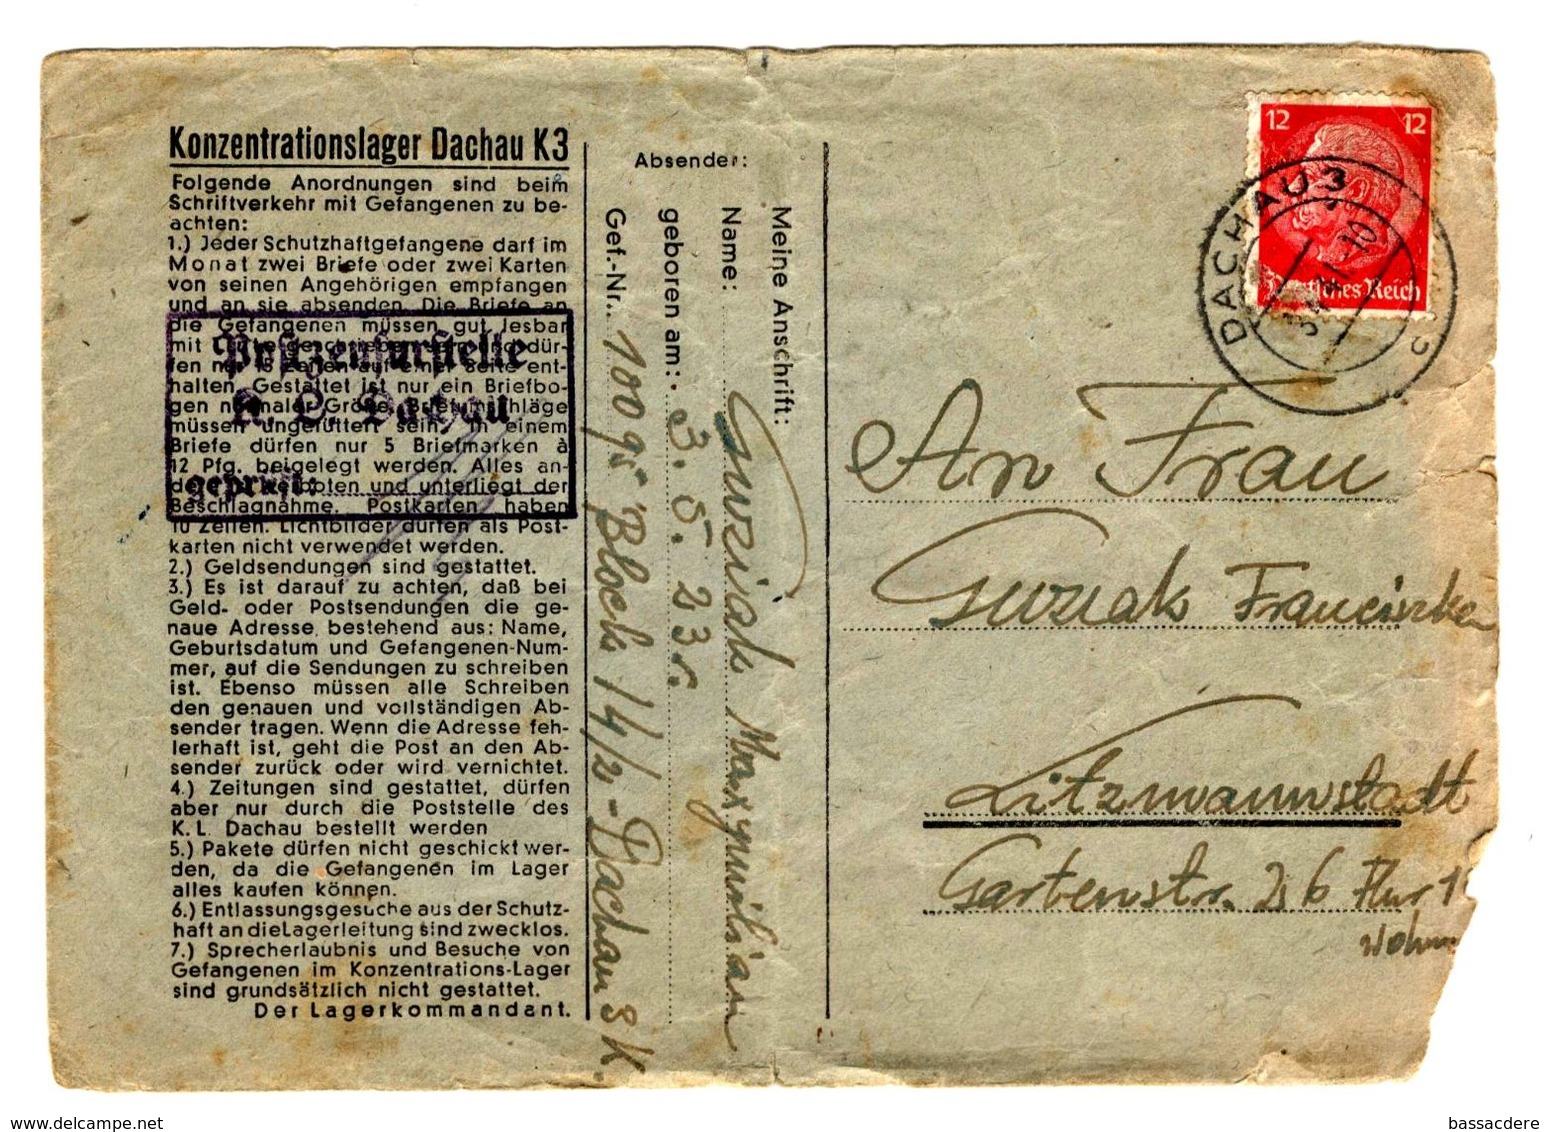 Konzentrationslager Dachau K3
Folgende Anordnungen sind beim
Schriftverkehr mit Gefangenen zu be-
achten:
1.) Jeder Schutzhaftgefangene darf im
Monat zwei Briefe oder zwei Karten
von seinen Angehörigen empfangen
und an sie absenden. Die Briefe an
die Gefangenen müssen gut lesbar
mit Tinte geschrieben sein und dür-
fen nur 15 Zeilen auf einer Seite ent-
halten. Gestattet ist nur ein Briefbo-
gen normaler Größe. Briefumschläge
müssen ungefüttert sein. In einem
Briefe dürfen nur 5 Briefmarken à
12 Pfg. beigelegt werden. Alles an-
dere ist verboten und unterliegt der
Beschlagnahme. Postkarten haben
10 Zeilen. Lichtbilder dürfen als Post-
karten nicht verwendet werden.
2.) Geldsendungen sind gestattet.
3.) Es ist darauf zu achten, daß bei
Geld- oder Postsendungen die ge-
naue Adresse, bestehend aus: Name,
Geburtsdatum und Gefangenen-Num-
mer, auf die Sendungen zu schreiben
ist. Ebenso müssen alle Schreiben
den genauen und vollständigen Ab-
sender tragen. Wenn die Adresse feh-
lerhaft ist, geht die Post an den Ab-
sender zurück oder wird vernichtet.
4.) Zeitungen sind gestattet, dürfen
aber nur durch die Poststelle des
K. L. Dachau bestellt werden
5.) Pakete dürfen nicht geschickt wer-
den, da die Gefangenen im Lager
alles kaufen können.
6.) Entlassungsgesuche aus der Schutz-
haft an die Lagerleitung sind zwecklos.
7.) Sprecherlaubnis und Besuche von
Gefangenen im Konzentrations-Lager
sind grundsätzlich nicht gestattet.
Der Lagerkommandant.
Postzensurstelle
K. L. Dachau
geprüft:
Absender:
Meine Anschrift:
Name: Guziak Maxymilian
geboren am: 3. 5. 23 r.
Gef.-Nr. 10095 Block 14/2 - Dachau 3 K.
12 12
Deutsches Reich
DACHAU 3
An Frau
Guziak Franciszka
Litzmannstadt
Gartenstr. 26 Flur